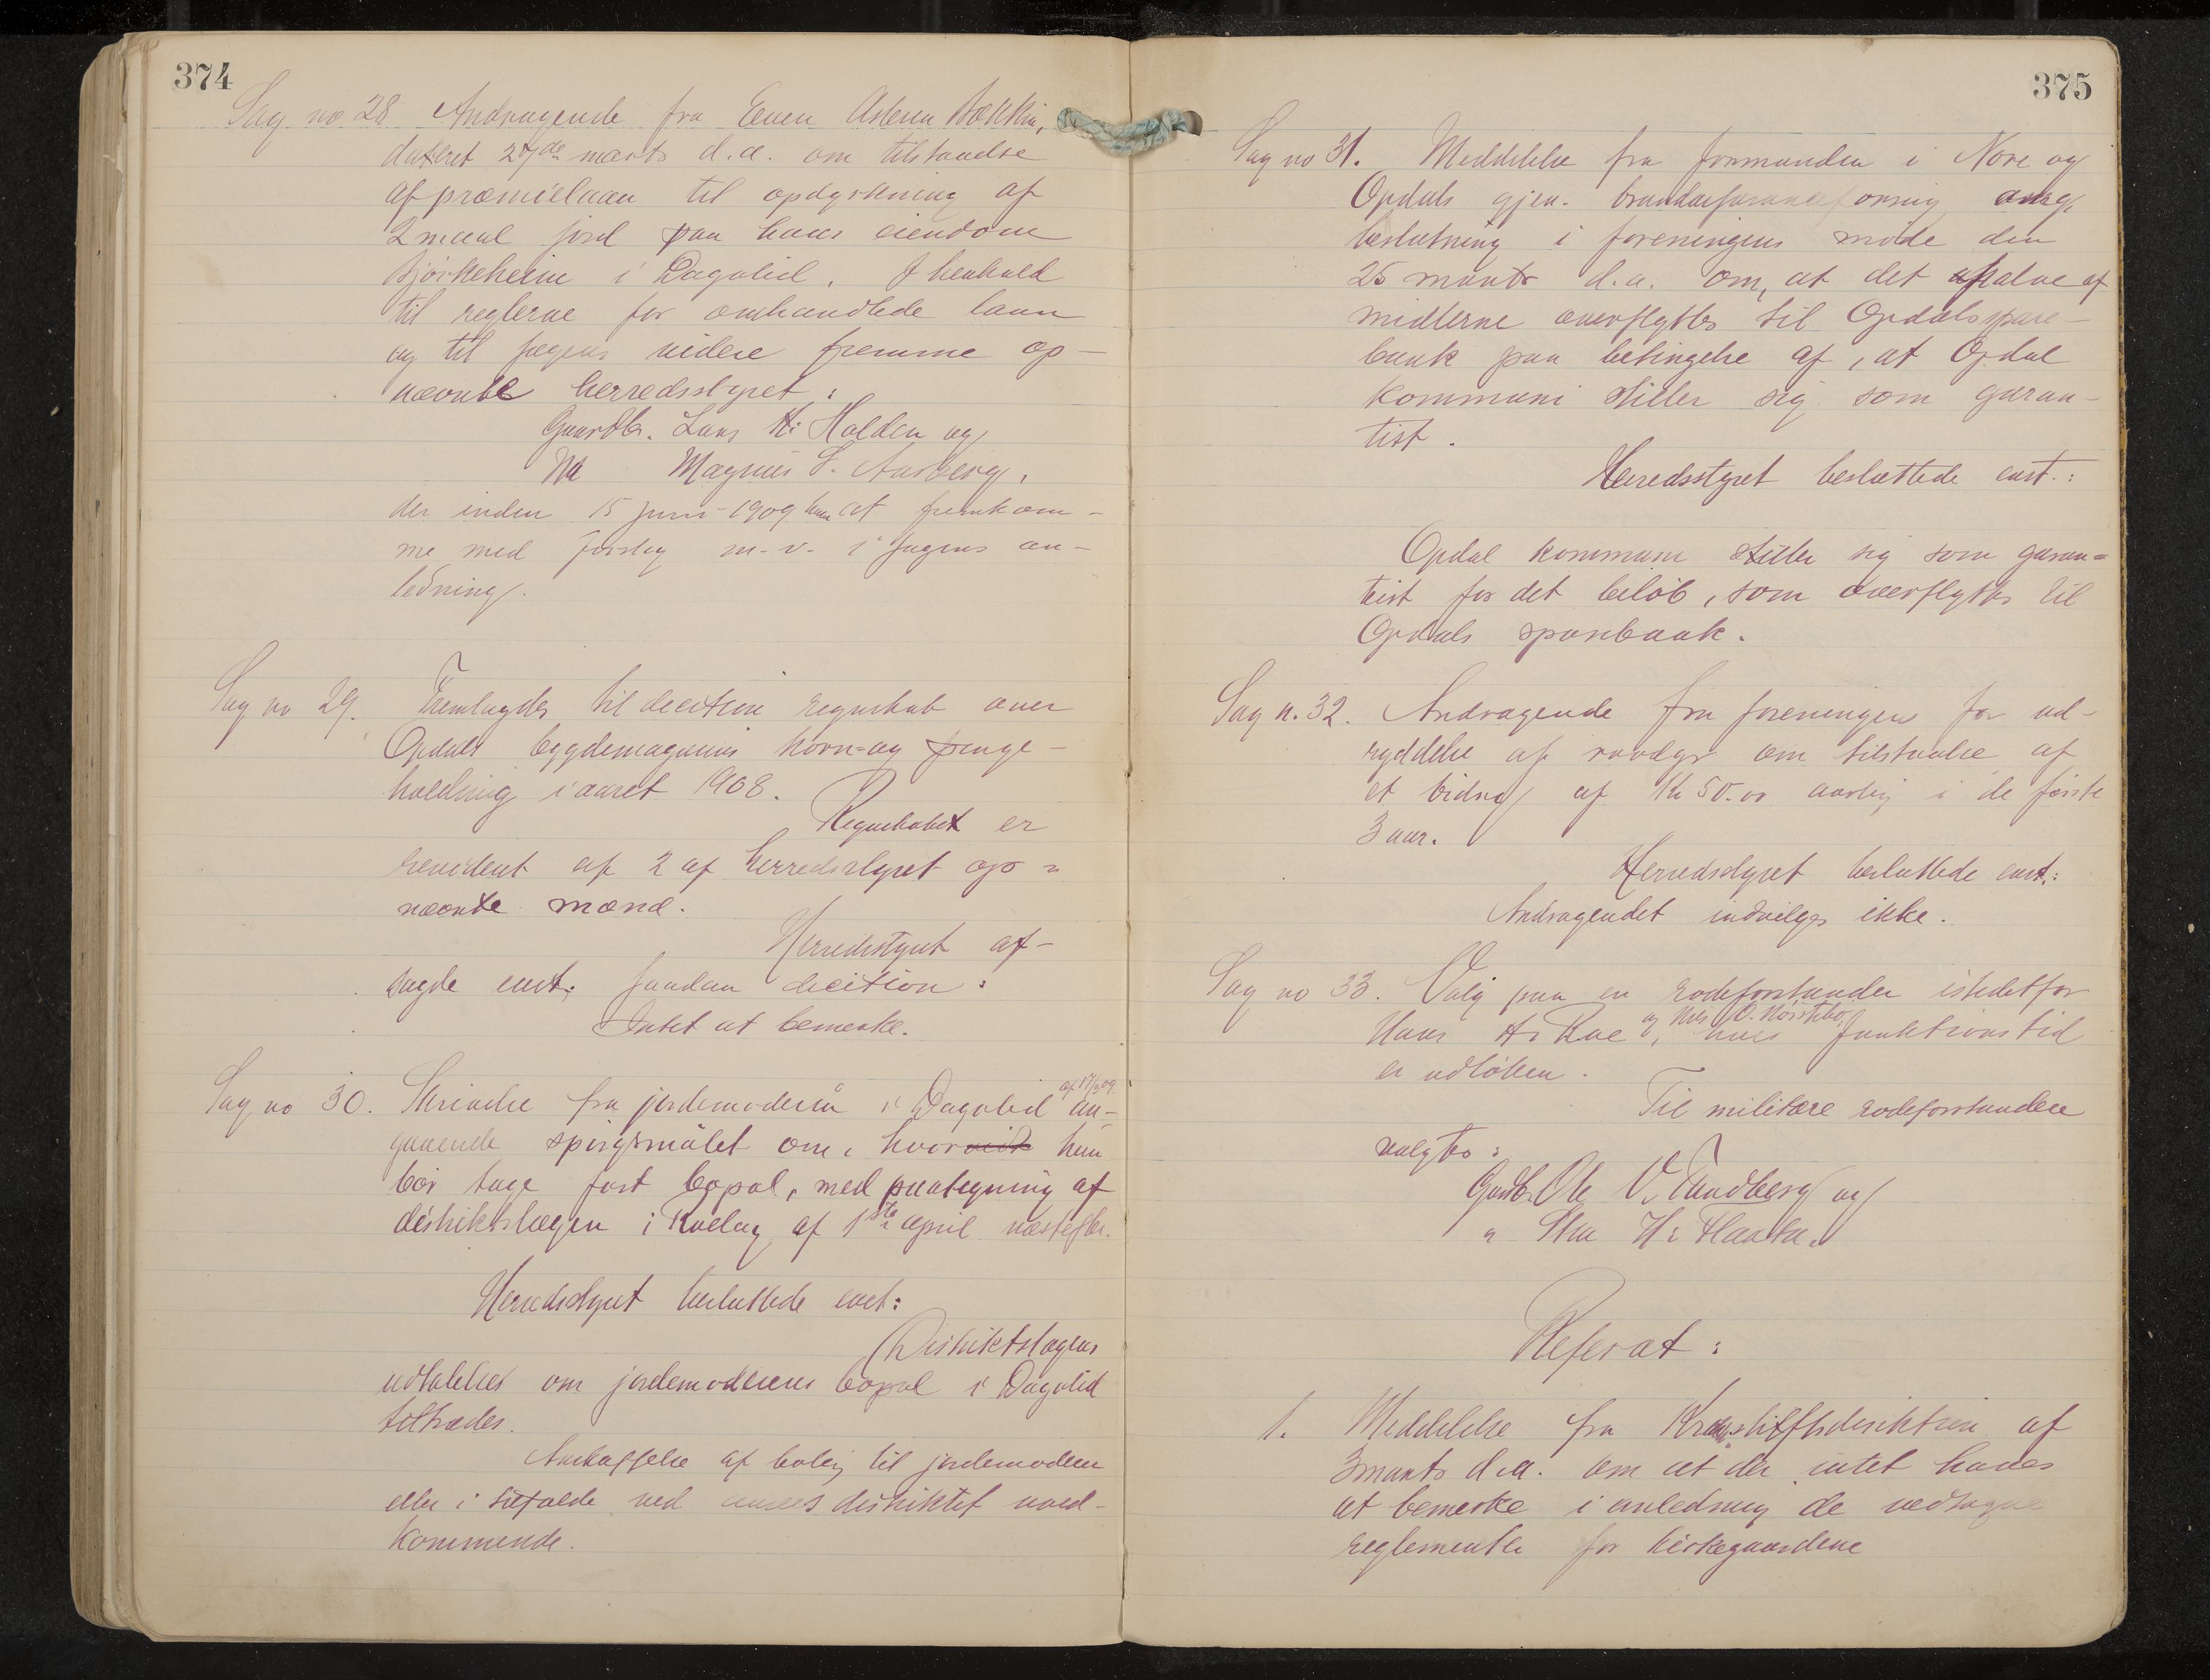 374
Sag no 28 Andragende fra Even Asleson Bækkin,
dateret 27de marts d.a. om tilstaaelse
af præmielaan til opdyrkning af
2 maal jord paa hans eiendom
Bjørkeheim i Dagalid. I henhold
til reglerne for omhandlede laan
og til sagens videre fremme op-
nævnte herredsstyret:
Gaardbr. Lars H. Halden og
Magnus S. Aasberg,
der inden 15 juni 1909 har at fremkom-
me med forslag m.v. i sagens an-
ledning.
Sag no 29. Fremlagdes til decition regnskab over
Opdals bygdemagasins korn- og penge-
holdning i aaret 1908.
Regnskabet er
revideret af 2 af herredsstyret op=
nævnte mænd.
Herredsstyret af-
sagde enst. saadan decition:
Intet at bemerke.
Sag no 30. Skrivelse fra jordemoderen i Dagalid af 17/3 09 an-
gaaende spørgsmålet om, hvor hun
bør tage fast bopæl, med paategning af
distriktslægen i Rollag af 1ste april næstefter.
Herredsstyret besluttede enst:
Distriktslægens
udtalelse om jordemoderens bopæl i Dagalid
tiltrædes.
Anskaffelse af bolig til jordemoderen
eller i tilfælde ved distriktet uved-
kommende.
375
Sag no 31. Meddelelse fra formanden i Nore og
Opdals gjen. brandassuranceforening ang.
beslutning i foreningens møde den
25 marts d.a. om, at det halve af
midlerne overflyttes til Opdals spare-
bank paa betingelse af, at Opdal
kommune stiller sig som garan-
tist.
Herredsstyret besluttede enst.:
Opdal kommune stiller sig som garan=
tist for det beløb, som overflyttes til
Opdals sparebank.
Sag n. 32. Andragende fra foreningen for ud-
ryddelse af rovdyr om tilstaaelse af
et bidrag af Kr 50.00 aarlig i de første
3 aar.
Herredsstyret besluttede enst.:
Andragendet indvilges ikke.
Sag no 33. Valg paa en rodeforstander istedetfor
Hans H. Rae og Nels O. , hvis funktionstid
er udløben.
Til militære rodeforstandere
valgtes:
Gaardbr. Ole V. Tandberg og
" H.
Referat:
1. Meddelelse fra Kra.stiftsdirektion af
3 marts d.a. om at der intet haves
at bemerke i anledning de vedtagne
reglementer for kirkegaardene